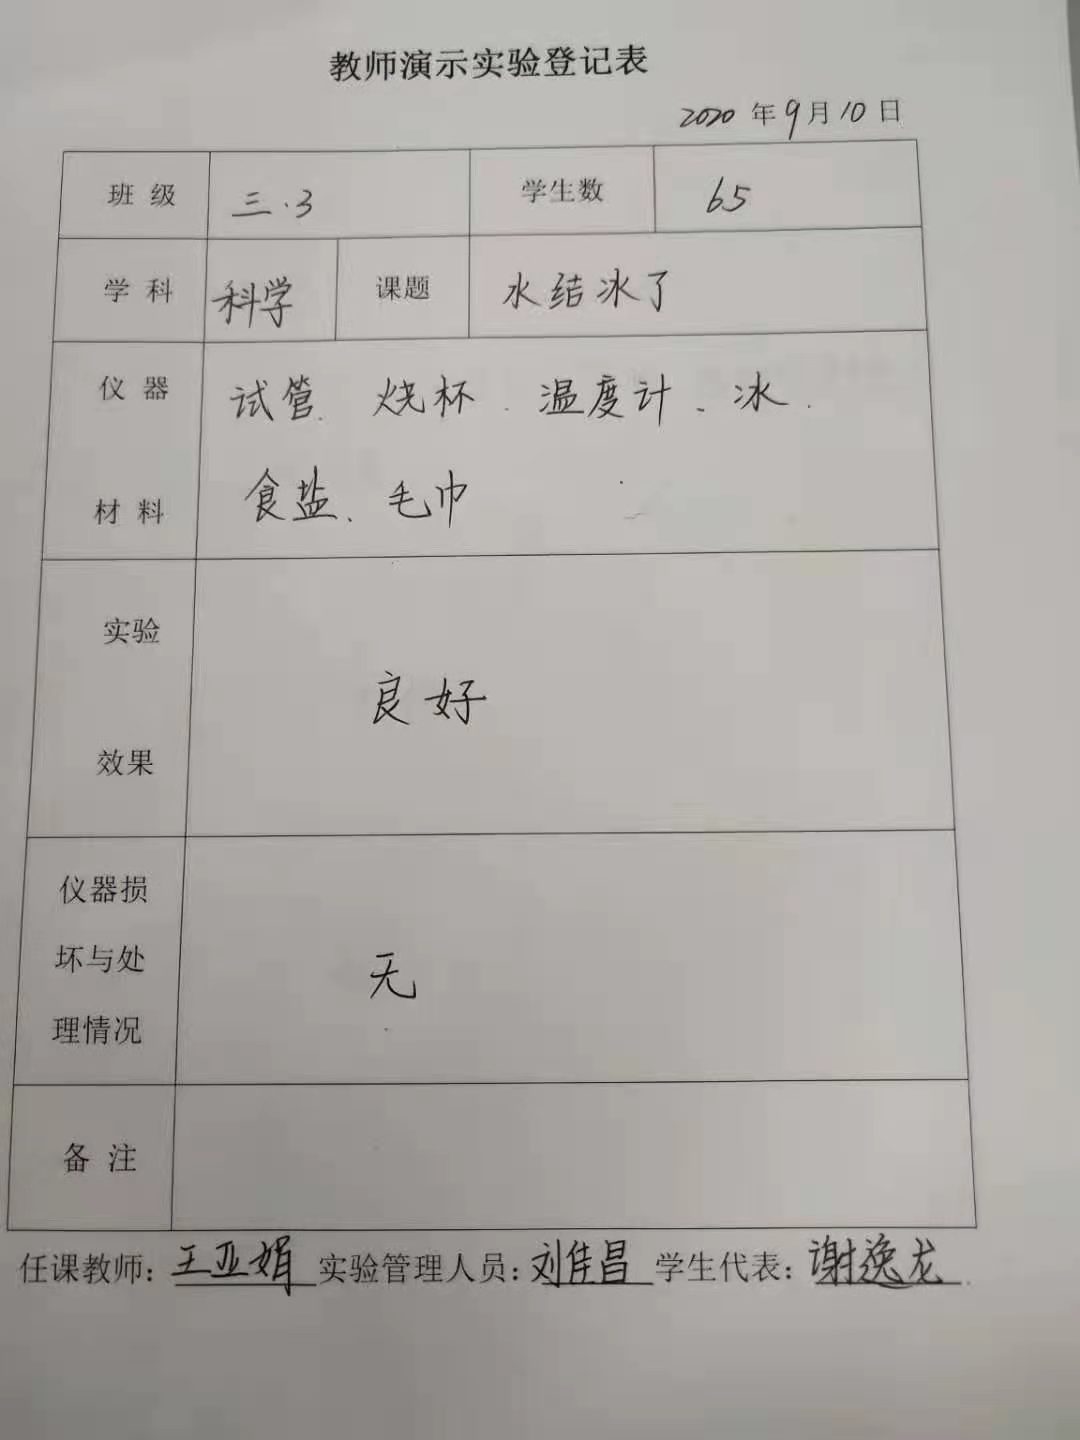 教师演示实验登记表
2020 年 9 月 10 日
班 级 三.3 学生数 65
学 科 科学 课题 水结冰了
仪 器 试管、烧杯、温度计、冰、
材 料 食盐、毛巾
实验
良好
效果
仪器损
坏与处 无
理情况
备 注
任课教师：王亚娟 实验管理人员：刘佳昌 学生代表：谢逸龙